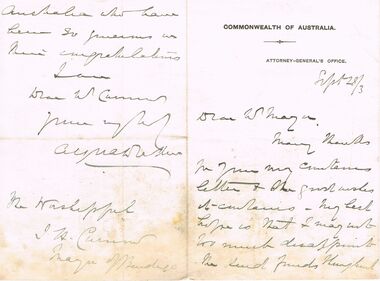 COMMONWEALTH OF AUSTRALIA.
ATTORNEY-GENERAL'S OFFICE.
Sept 28/3
Dear Mr Mayor,
Many thanks
for your very courteous
letter & the good wishes
it contains - My best
hope is that I may not
too much disappoint
the kind friends throughout
Australia who have
been so generous in
their congratulations
I am
Dear Mr
yours very truly
Alfred Deakin
The Worshipful
J. H.
Mayor of Bendigo